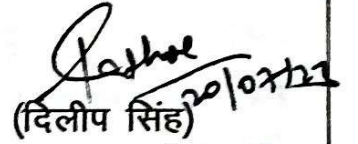 Rathore
20/07/22
(दिलीप सिंह)